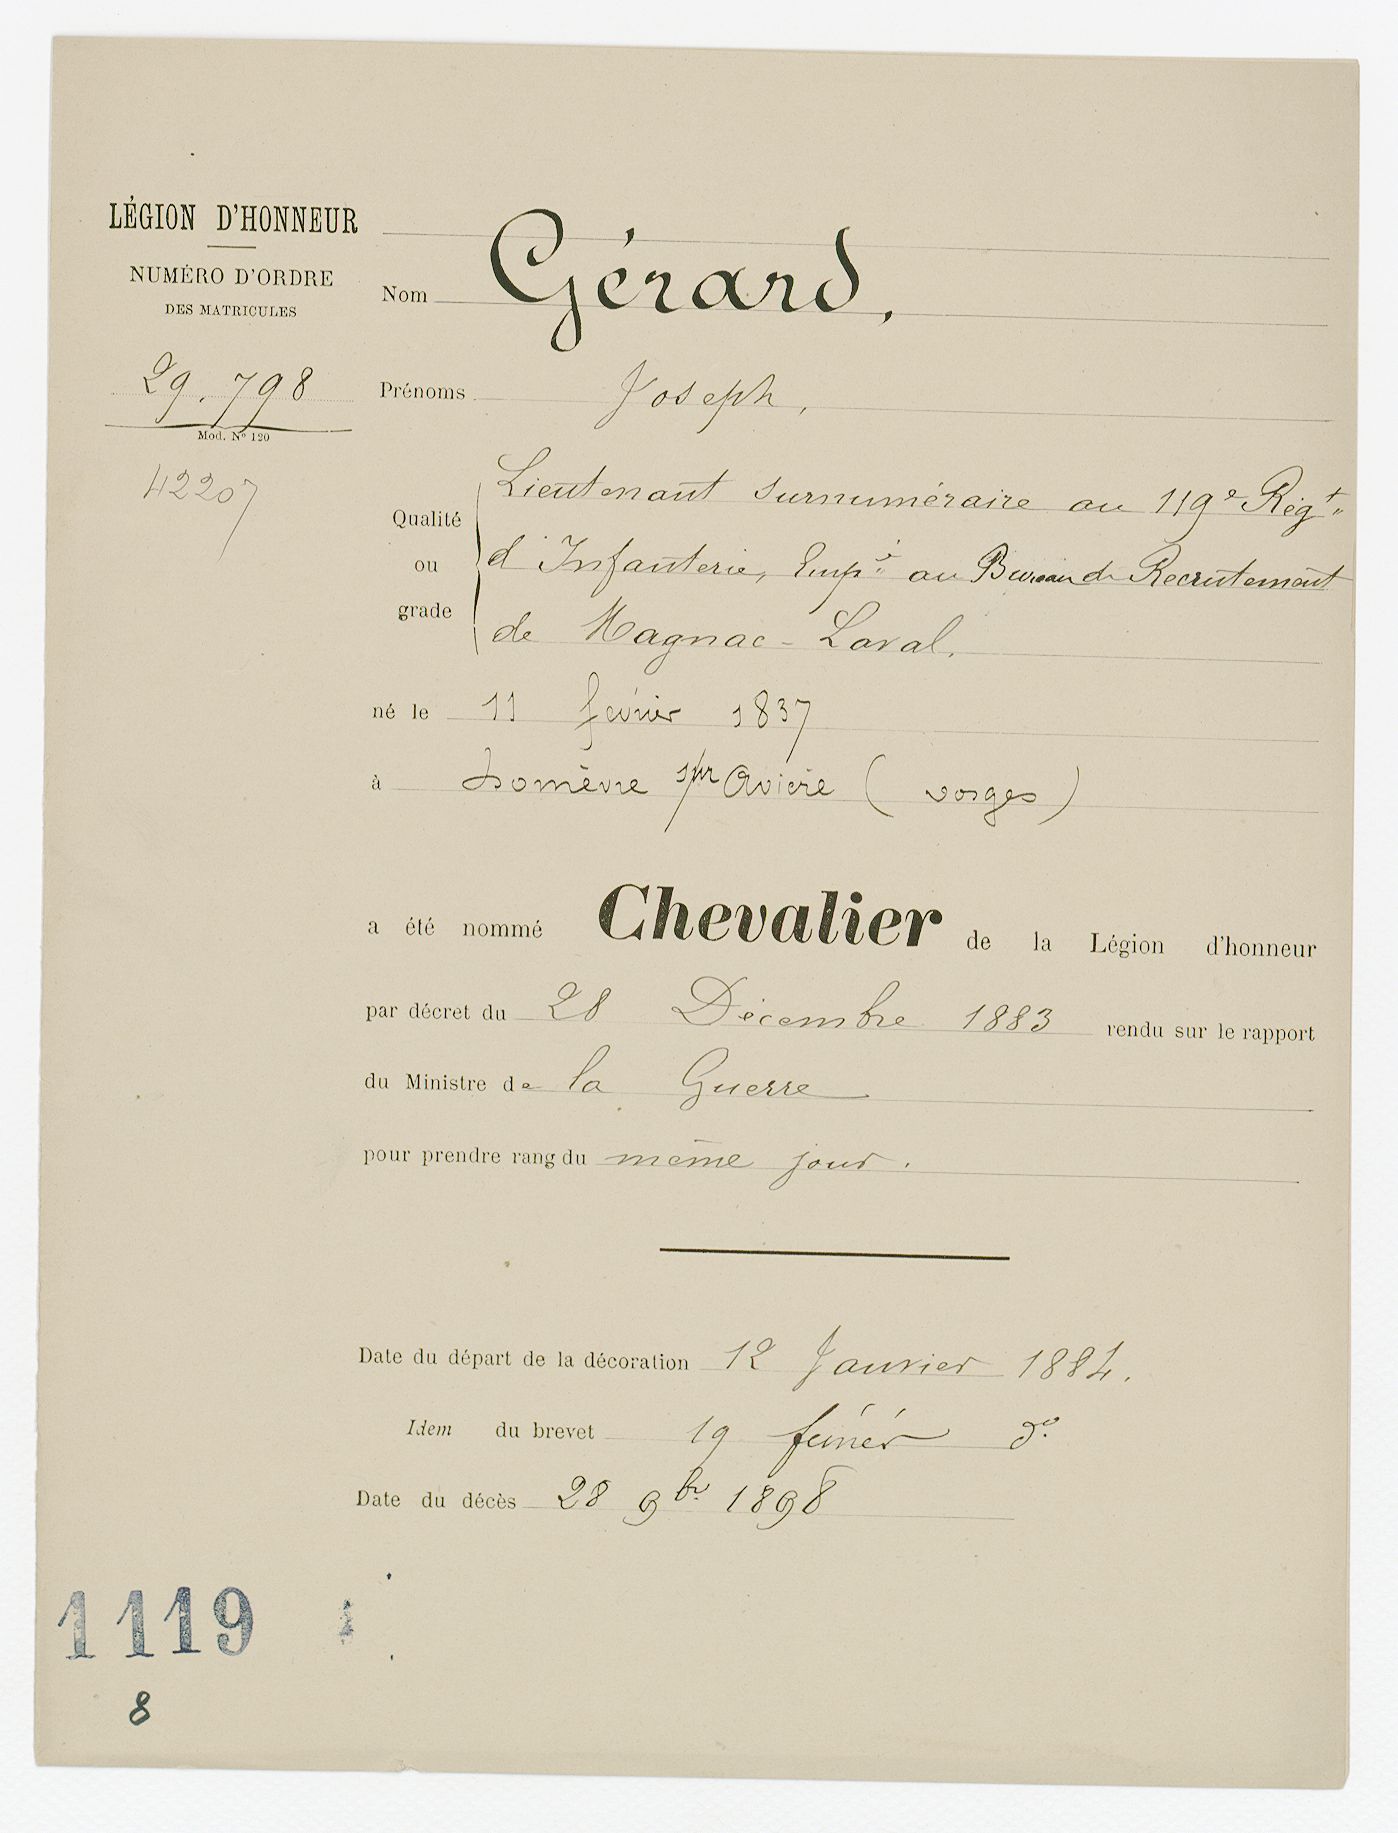 LÉGION D'HONNEUR
NUMÉRO D'ORDRE
DES MATRICULES
29.798
Mod. N° 120
42207
Nom Gérard,
Prénoms Joseph,
Qualité ou grade
Lieutenant surnuméraire au 119e Régt
d'Infanterie, Empé au Bureau de Recrutement
de Magnac-Laval.
né le 11 fevrier 1837
à Domèvre sur Avière (vosges)
a été nommé Chevalier de la Légion d'honneur
par décret du 28 Décembre 1883 rendu sur le rapport
du Ministre de la Guerre
pour prendre rang du même jour.
Date du départ de la décoration 12 Janvier 1884.
Idem du brevet 19 février do
Date du décès 28 9bre 1898
1119
8